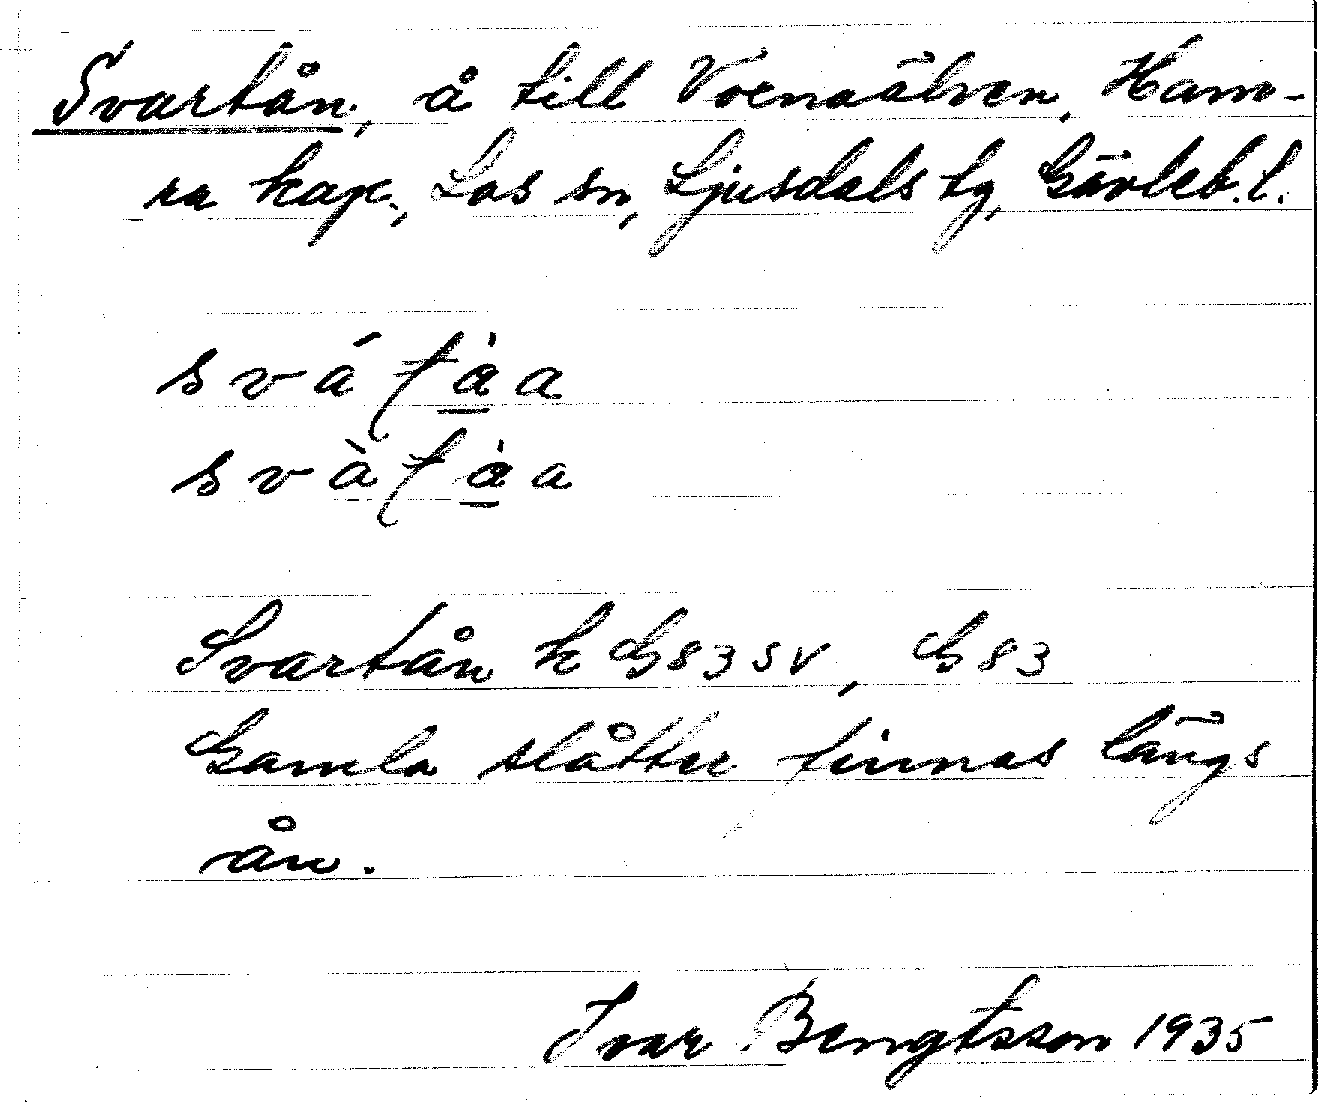 Svartån, å till Voxnaälven, Ham-
ra kap., Los sn, Ljusdals tg, Gävleb. l.
svá ʈàa
svà ʈàa
Svartån k G83SV, G83
Gamla slåtter finnas längs
ån.
Ivar Bengtsson 1935